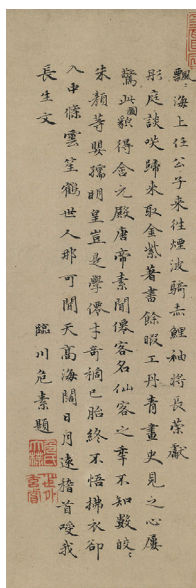 飄〻海上任公子來往煙波騎赤鯉袖將長策獻
彤庭談咲歸來取金紫著書餘暇工丹青畫史見之心屢
驚此圖貌得含元殿唐帝素聞僊客名仙客之年不知數皎〻
朱顏等嬰孺明皇豈是學僊才奇祠已胎終不悟拂衣卻
入中條雲笙鶴世人那可聞天高海闊日月速稽首噯我
長生文
臨川危素題